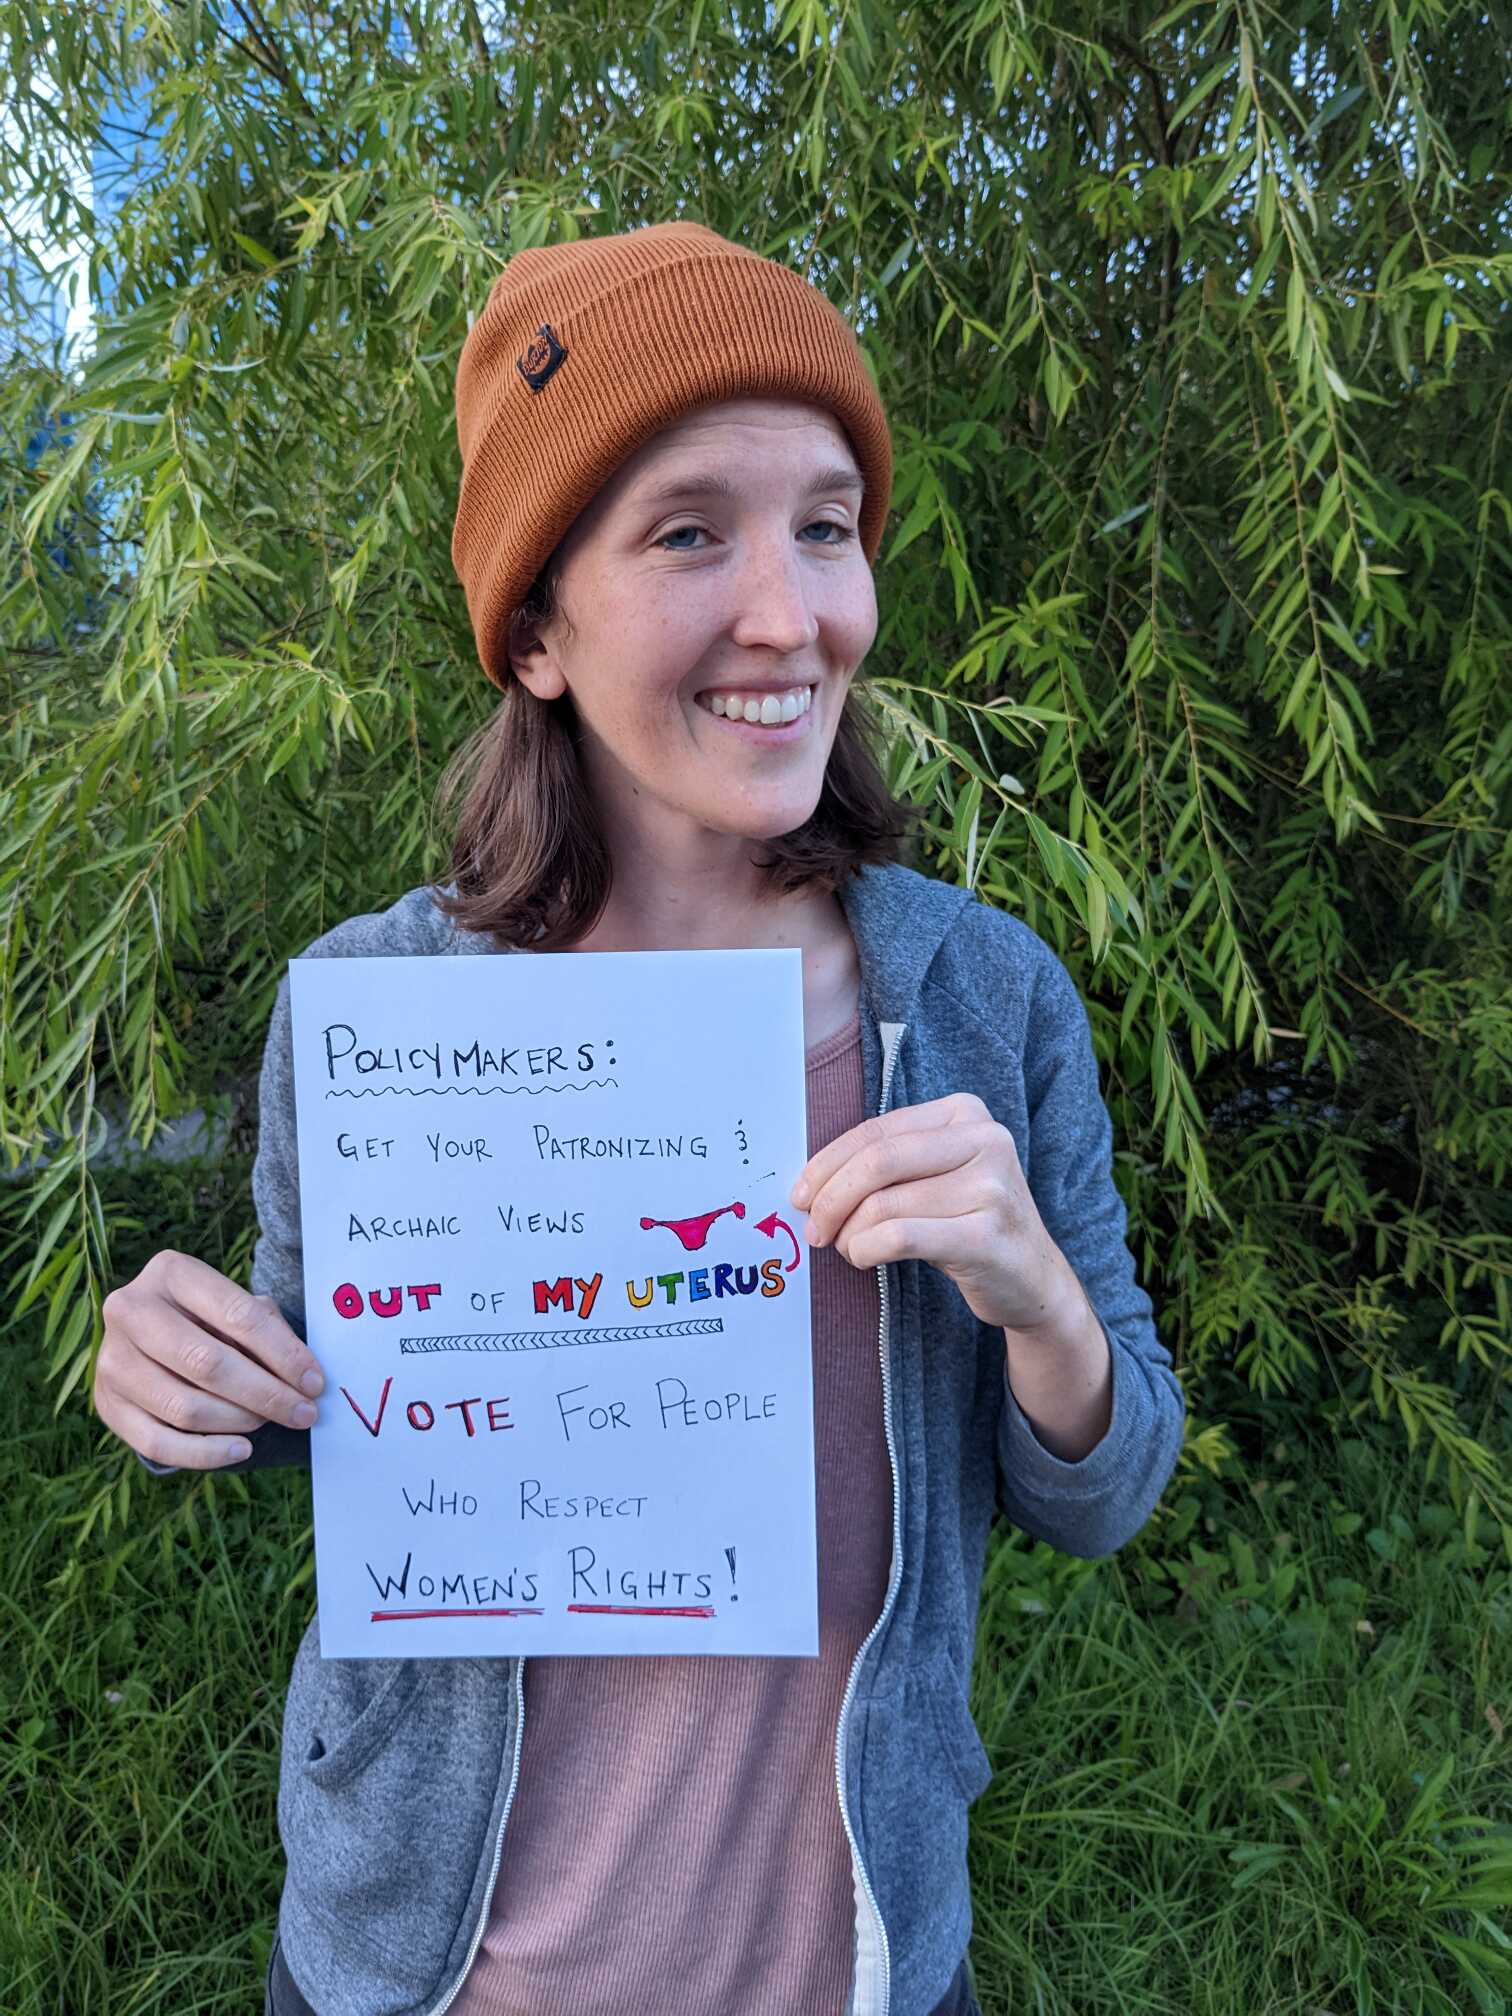 POLICYMAKERS:
GET YOUR PATRONIZING &
ARCHAIC VIEWS
OUT OF MY UTERUS
VOTE FOR PEOPLE
WHO RESPECT
WOMEN'S RIGHTS!